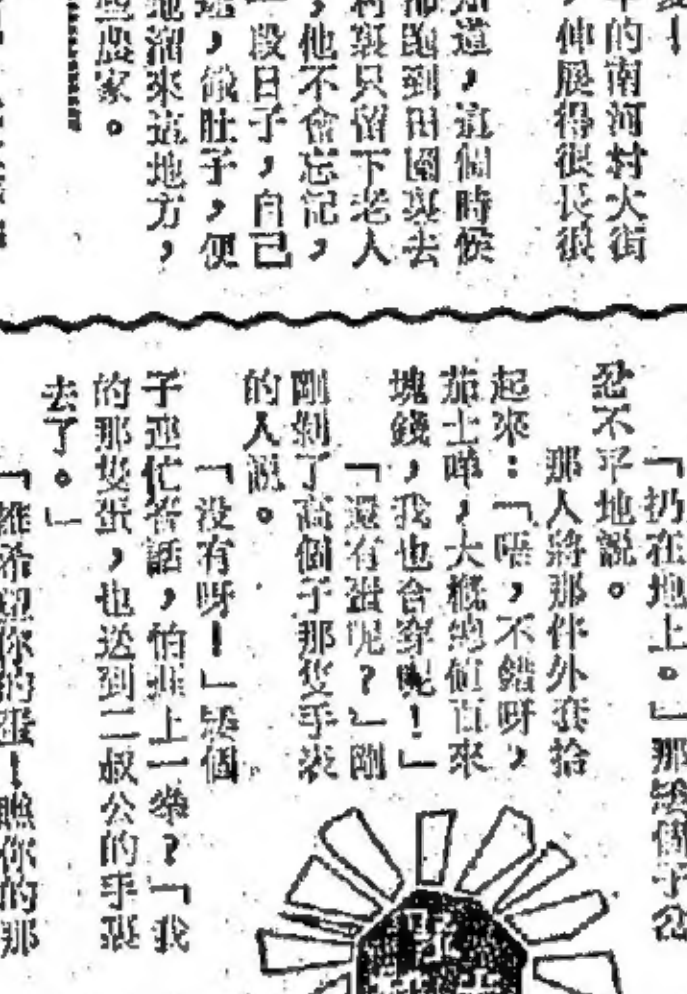 的南河村大街
伸展得很長很
知道,這個時候
都跑到田園裏去
村裏只留下老人
,他不會忘記,
段日子,自己
,餓肚子,便
地溜來這地方,
農家。
「扔在地上。」那矮個子公
忍不平地說。
那人將那件外套拾
起來:「唔,不錯呀,
茄士咩,大概總値百來
塊錢,我也合穿呢!」
「還有蛋呢?」剛
剛剝了高個子那隻手表
的人說。
「没有呀!」矮個
子連忙答話,怕
上一
?「我
的那隻蛋,也送到二叔公的手裏
去了。」
「誰希
你的蛋!瞧你的那